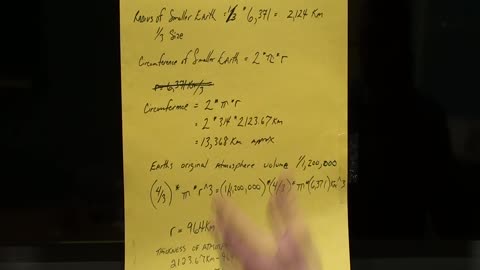 Radius of Smaller Earth = 1/3 * 6,371 = 2,124 Km
1/3 Size
Circumference of Smaller Earth = 2 * π * r
Circumference = 2 * π * r
= 2 * 3.14 * 2123.67 Km
= 13,368 Km approx
Earths original Atmosphere volume 1/1,200,000
(4/3) * π * r^3 = (1/1,200,000) * (4/3) * π * (6,371) Km^3
r = 964 Km
Thickness of Atmos
2123.67 Km -